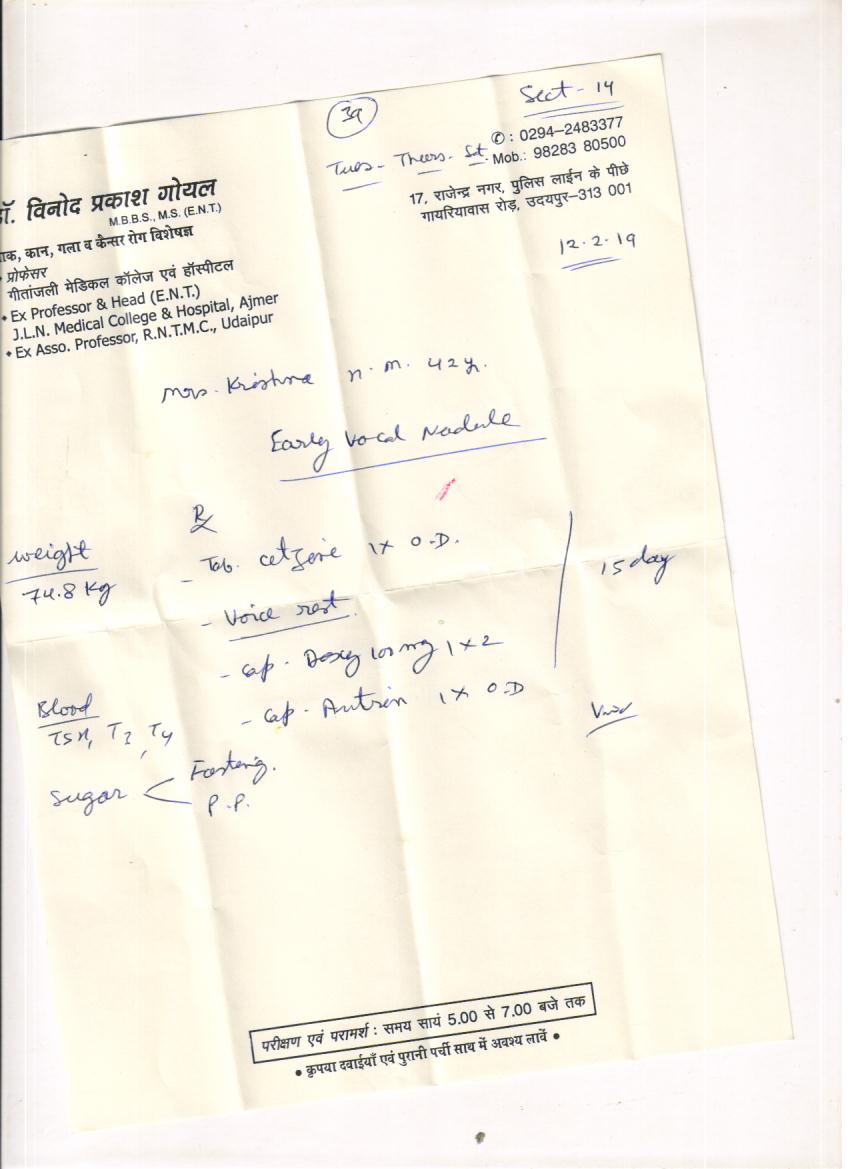 Sect - 14
39
Tues - Thurs - Sat.
✆ : 0294–2483377
Mob.: 98283 80500
17, राजेन्द्र नगर, पुलिस लाईन के पीछे
गायरियावास रोड़, उदयपुर–313 001
12.2.19
डॉ. विनोद प्रकाश गोयल
M.B.B.S., M.S. (E.N.T.)
नाक, कान, गला व कैन्सर रोग विशेषज्ञ
• प्रोफेसर
गीतांजली मेडिकल कॉलेज एवं हॉस्पीटल
• Ex Professor & Head (E.N.T.)
J.L.N. Medical College & Hospital, Ajmer
• Ex Asso. Professor, R.N.T.M.C., Udaipur
Mrs. Krishna n. m. 42y.
Early Vocal Nodule
Rx
weight
74.8 Kg
- Tab. cetzine 1x O.D.
15 day
- Voice rest.
- Cap. Doxy 100 mg 1x2
- Cap. Autrin 1x O.D
Blood
TSH, T3, T4
Sugar < Fasting.
P.P.
परीक्षण एवं परामर्श : समय सायं 5.00 से 7.00 बजे तक
• कृपया दवाईयाँ एवं पुरानी पर्ची साथ में अवश्य लावें •